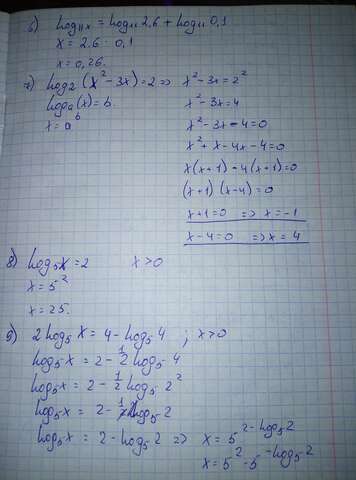 6) log₁₁x = log₁₁ 2,6 + log₁₁ 0,1
x = 2,6 · 0,1
x = 0,26.
7) log₂ (x² - 3x) = 2 => x² - 3x = 2²
logₐ(x) = b. x² - 3x = 4
x = aᵇ x² - 3x - 4 = 0
x² + x - 4x - 4 = 0
x(x+1) - 4(x+1) = 0
(x+1) (x-4) = 0
x+1=0 => x = -1
x-4=0 => x = 4
8) log₅x = 2 x > 0
x = 5²
x = 25.
9) 2 log₅ x = 4 - log₅ 4 ; x > 0
log₅x = 2 - 1/2 log₅ 4
log₅x = 2 - 1/2 log₅ 2²
log₅x = 2 - 1/2 log₅ 2
log₅x = 2 - log₅ 2 => x = 5^(2 - log₅2)
x = 5² · 5^(-log₅2)